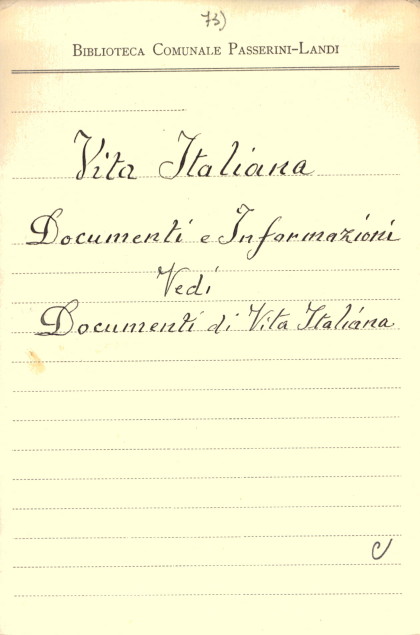 73)
BIBLIOTECA COMUNALE PASSERINI-LANDI
Vita Italiana
Documenti e Informazioni
Vedi
Documenti di Vita Italiana